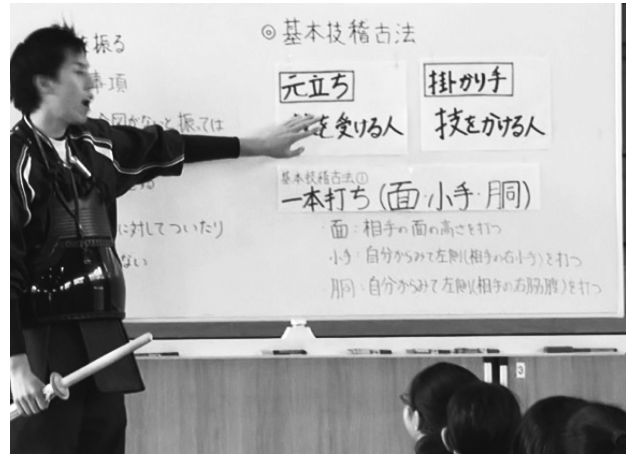 を振る
事項
合図がないと振っては
に対してついたり
ない
◎基本技稽古法
元立ち
を受ける人
掛かり手
技をかける人
基本技稽古法①
一本打ち(面・小手・胴)
・面:相手の面の高さを打つ
・小手:自分からみて左側(相手の右小手)を打つ
・胴:自分からみて左側(相手の右脇腹)を打つ
3